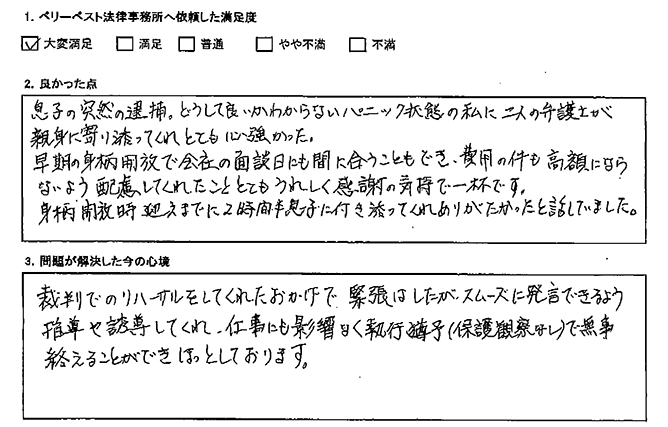 1. ベリーベスト法律事務所へ依頼した満足度
大変満足 満足 普通 やや不満 不満
2. 良かった点
息子の突然の逮捕。どうして良いかわからないパニック状態の私に二人の弁護士が
親身に寄り添ってくれとても心強かった。
早期の身柄開放で会社の面談日にも間に合うこともでき、費用の件も高額になら
ないよう配慮してくれたこととてもうれしく感謝の気持で一杯です。
身柄開放時迎えまでに2時間半息子に付き添ってくれありがたかったと話していました。
3. 問題が解決した今の心境
裁判でのリハーサルをしてくれたおかげで緊張はしたが、スムーズに発言できるよう
指導や誘導してくれ、仕事にも影響なく執行猶予(保護観察なし)で無事
終えることができほっとしております。